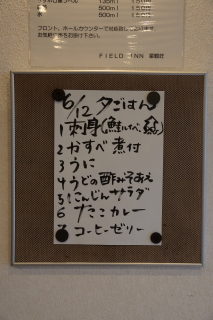 水 500ml 100円
フロント、ホールカウンターで
FIELD INN 星観荘
6/12 夕ごはん
1 刺身(鮭ルイベ、
2 かすべ煮付
3 うに
4 うどの酢みそあえ
5 にんじんサラダ
6 たこカレー
7 コーヒーゼリー